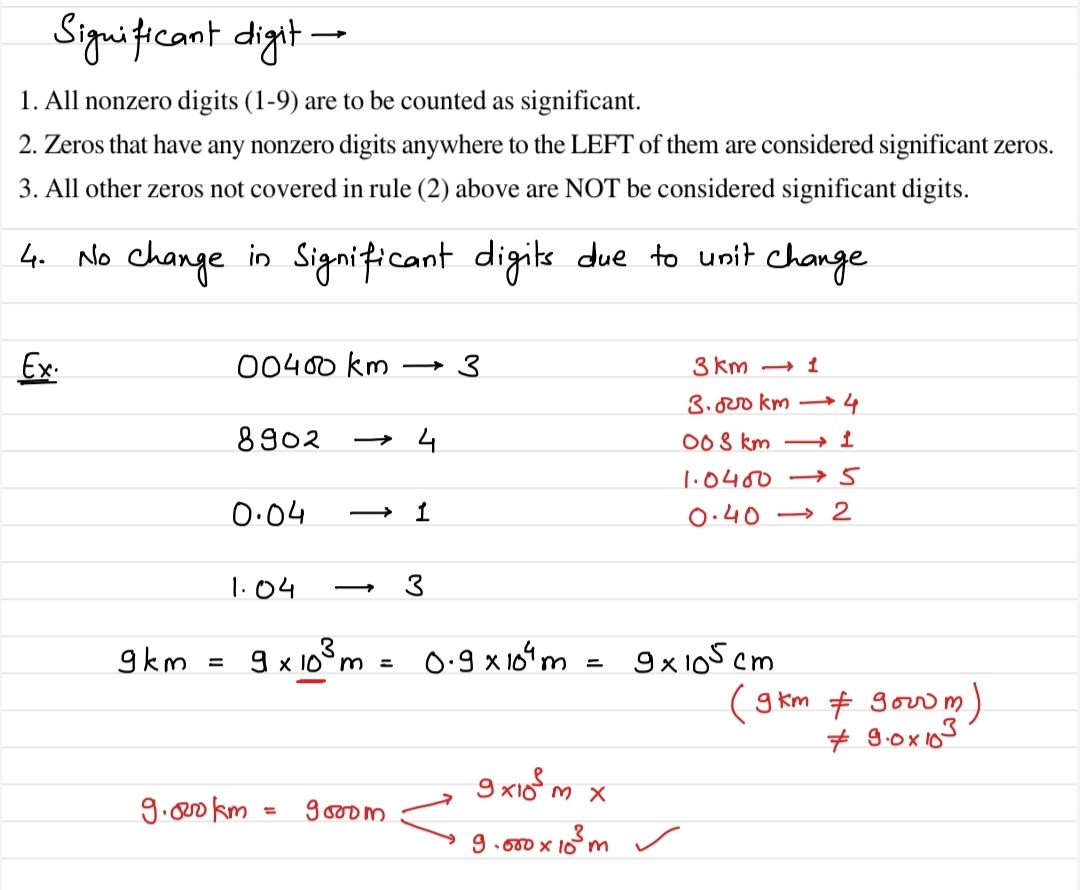 Significant digit →
1. All nonzero digits (1-9) are to be counted as significant.
2. Zeros that have any nonzero digits anywhere to the LEFT of them are considered significant zeros.
3. All other zeros not covered in rule (2) above are NOT be considered significant digits.
4. No change in Significant digits due to unit change
Ex.
00400 km → 3
8902 → 4
0.04 → 1
1.04 → 3
3 km → 1
3.000 km → 4
003 km → 1
1.0400 → 5
0.40 → 2
9 km = 9 × 10³ m = 0.9 × 10⁴ m = 9 × 10⁵ cm
(9 km ≠ 9000 m)
≠ 9.0 × 10³
9.000 km = 9000 m
9 × 10³ m ×
9.000 × 10³ m ✓